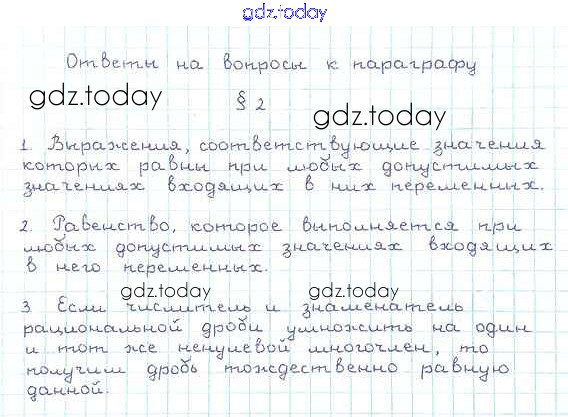 gdz.today
Ответы на вопросы к параграфу
gdz.today § 2 gdz.today
1. Выражения, соответствующие значения
которых равны при любых допустимых
значениях входящих в них переменных.
2. Равенство, которое выполняется при
любых допустимых значениях входящих
в него переменных.
gdz.today gdz.today
3. Если числитель и знаменатель
рациональной дроби умножить на один
и тот же ненулевой многочлен, то
получим дробь тождественно равную
данной.